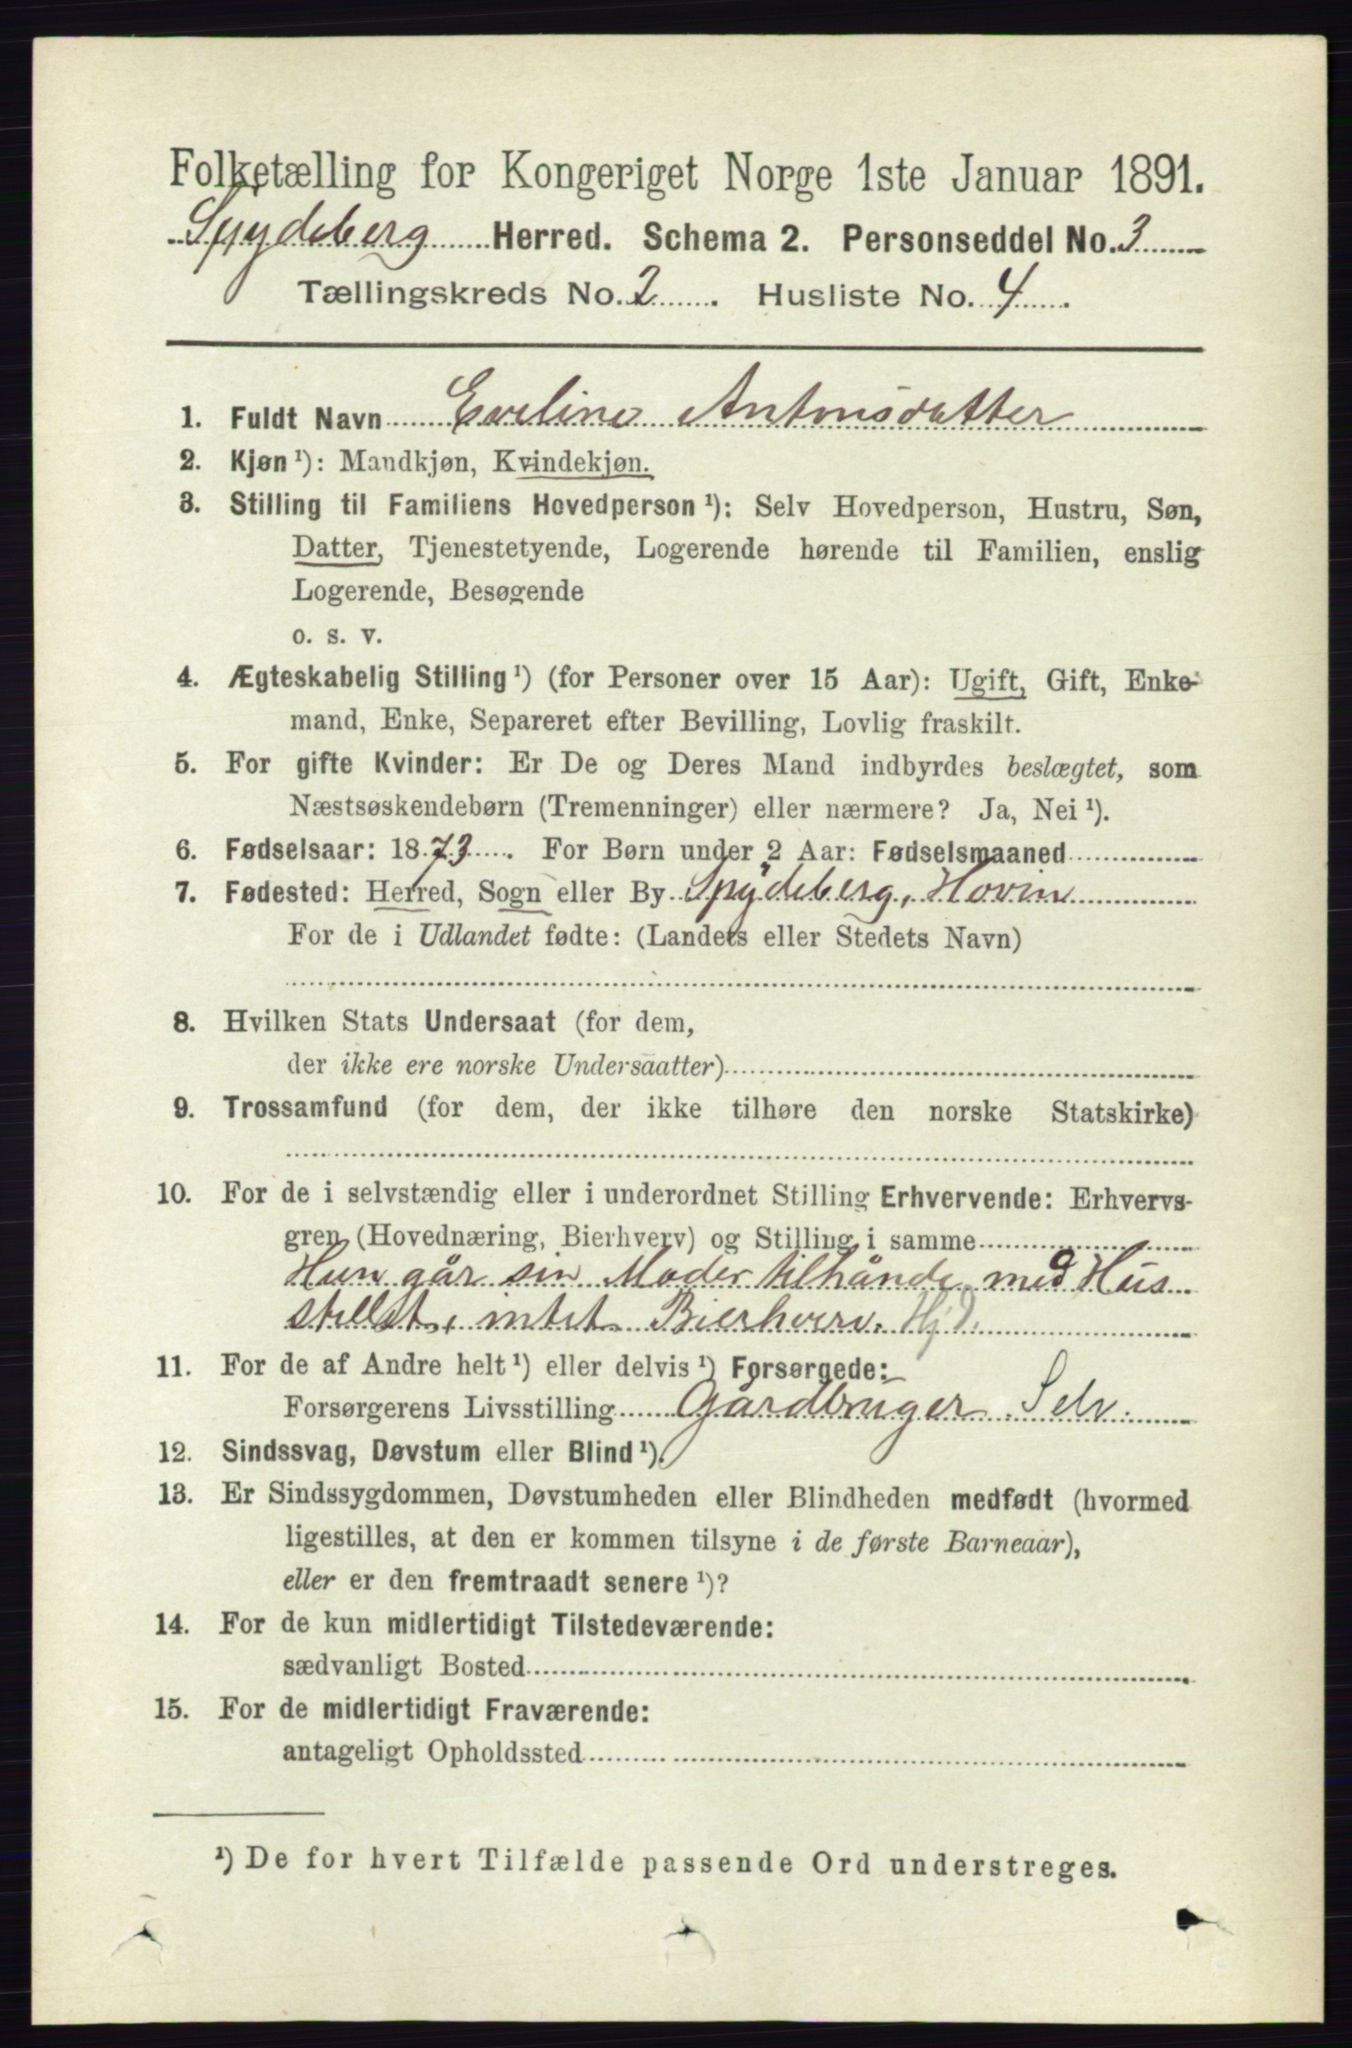 Folketælling for Kongeriget Norge 1ste Januar 1891.
Spydeberg Herred. Schema 2. Personseddel No. 3
Tællingskreds No. 2. Husliste No. 4.
1. Fuldt Navn Eveline Antonsdatter
2. Kjøn ¹): Mandkjøn, Kvindekjøn.
3. Stilling til Familiens Hovedperson ¹): Selv Hovedperson, Hustru, Søn,
Datter, Tjenestetyende, Logerende hørende til Familien, enslig
Logerende, Besøgende
o. s. v.
4. Ægteskabelig Stilling ¹) (for Personer over 15 Aar): Ugift, Gift, Enke-
mand, Enke, Separeret efter Bevilling, Lovlig fraskilt.
5. For gifte Kvinder: Er De og Deres Mand indbyrdes beslægtet, som
Næstsøskendebørn (Tremenninger) eller nærmere? Ja, Nei ¹).
6. Fødselsaar: 1873. For Børn under 2 Aar: Fødselsmaaned
7. Fødested: Herred, Sogn eller By Spydeberg, Hovin
For de i Udlandet fødte: (Landets eller Stedets Navn)
8. Hvilken Stats Undersaat (for dem,
der ikke ere norske Undersaatter)
9. Trossamfund (for dem, der ikke tilhøre den norske Statskirke)
10. For de i selvstændig eller i underordnet Stilling Erhvervende: Erhvervs-
gren (Hovednæring, Bierhverv) og Stilling i samme
Hun går sin Moder tilhånde med Hus
stellet, intet Bierhverv. Hjd.
11. For de af Andre helt ¹) eller delvis ¹) Forsørgede:
Forsørgerens Livsstilling Gårdbruger Selv.
12. Sindssvag, Døvstum eller Blind ¹).
13. Er Sindssygdommen, Døvstumheden eller Blindheden medfødt (hvormed
ligestilles, at den er kommen tilsyne i de første Barneaar),
eller er den fremtraadt senere ¹)?
14. For de kun midlertidigt Tilstedeværende:
sædvanligt Bosted
15. For de midlertidigt Fraværende:
antageligt Opholdssted
¹) De for hvert Tilfælde passende Ord understreges.